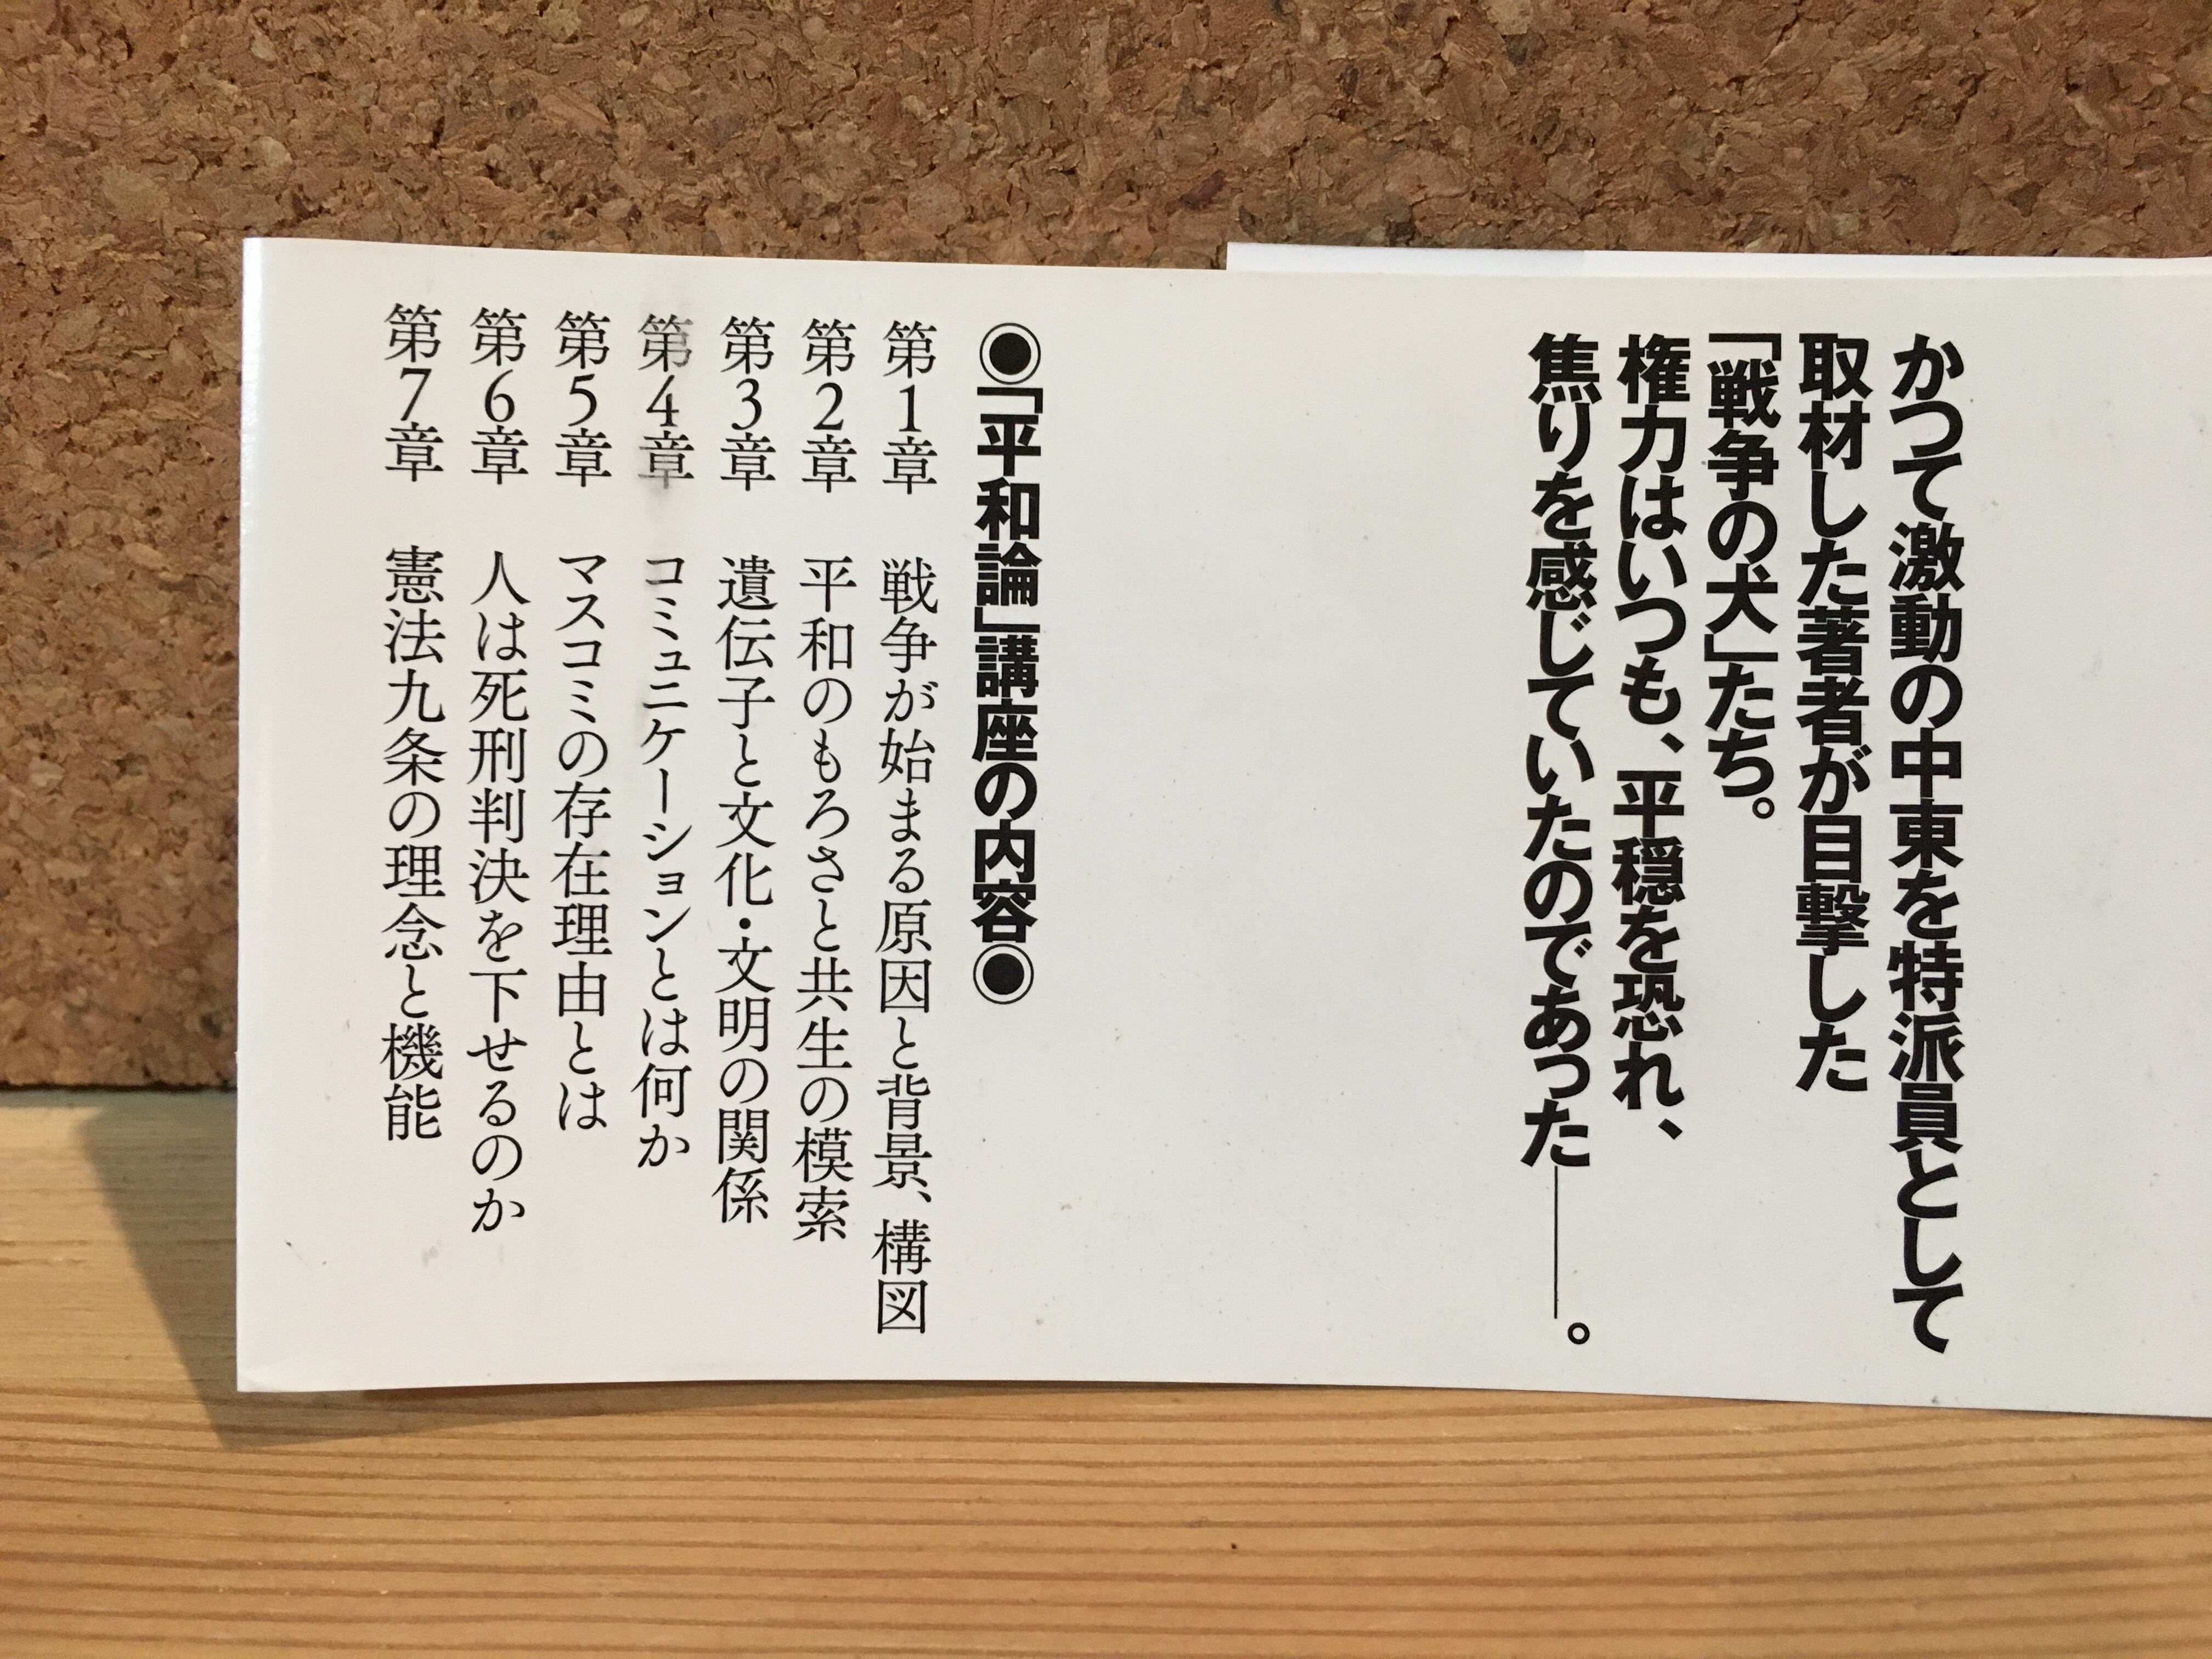 かつて激動の中東を特派員として
取材した著者が目撃した
「戦争の犬」たち。
権力はいつも、平穏を恐れ、
焦りを感じていたのであった――。
◉「平和論」講座の内容◉
第1章　戦争が始まる原因と背景、構図
第2章　平和のもろさと共生の模索
第3章　遺伝子と文化・文明の関係
第4章　コミュニケーションとは何か
第5章　マスコミの存在理由とは
第6章　人は死刑判決を下せるのか
第7章　憲法九条の理念と機能